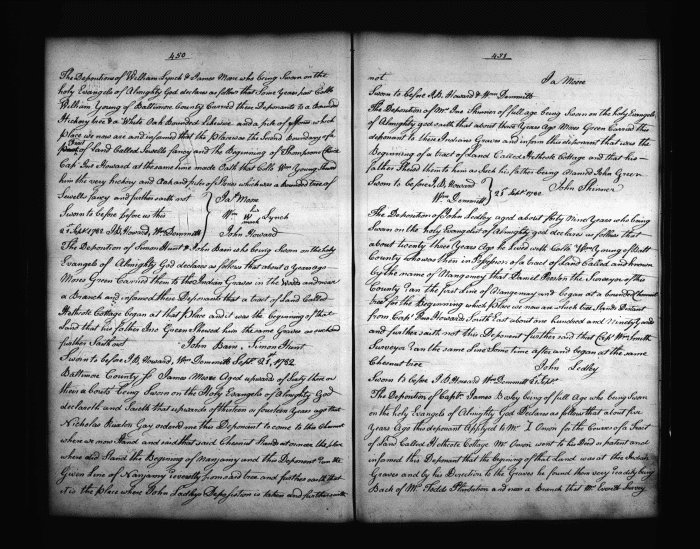 450
The Deposition of William Lynch & James Moore who being Sworn on the
holy Evangels of Almighty God declares as follows that Some Years past Coll.
William Young of Baltimore County Carried these Deponants to a Bounded
Hickory tree & a White Oak Bounded Likewise and a pile of Stones which
place we now are and informed that the place was the Second Boundary of a
Tract of Land Called Sewells fancy and the Beginning of Thompsons
Capt Jno Howard at the same time made Oath that Colo Wm Young Shewed
him the very hickory and Oak and pile of Stones which was a bounded tree of
Sewells fancy and further saith not
Jas Moore
his
Wm W Lynch
mark
Sworn to before us this
John Howard
21 Sept 1782 J.B. Howard, Wm Demmitt
The Deposition of Simon Hunt & John Bain who being Sworn on the holy
Evangels of Almighty God declares as follows that about years ago
Moses Green Carried them to the Indian Graves in the Woods and near
a Branch and informed these Deponants that a tract of Land Called
Hethcote Cottage began at that place and it was the beginning of that
Land that his father Jno Green Shewed him the same Graves as such and
further Saith not John Bain, Simon Hunt
Sworn to before J.B. Howard, Wm Demmitt Sept. 21st, 1782
Baltimore County ss James Moore Aged upwards of Sixty three or
there abouts being Sworn on the Holy Evangels of Almighty God
declareth and Saith that upwards of thirteen or fourteen Years ago that
Nicholas Ruxton Gay ordered me this Deponant to come to the Chesnut
where we now Stand and said that said Chesnut Stood at or near the place
where did Stand the Begining of Nanjamy and this Deponant Ran the
Given Line of Nanjamy reversetly from said tree and further saith that
it is the place where John Ledleys Deposition is taken and further saith
451
not Ja Moore
Sworn to before J.B. Howard & Wm Demmitt
The Deposition of Mr Jno Skinner of full age being Sworn on the holy Evangels
of Almighty god saith that about three Years Ago Moses Green Carried this
deponent to these Indians Graves and inform this deponent that was the
Beginning of a tract of Land Called Hethcote Cottage and that his
father Shewed them to him as Such his father being Named John Green
Sworn to before J.B. Howard
Wm Demmitt
21 Sept 1782 John Skinner
The Deposition of John Ledley aged about forty Nine Years who being
Sworn on the holy Evangelist of Almighty God declares as follows that
about twenty three Years Ago he lived with Colo Wm Young of Balt
County who was then in Possession of a tract of Land Called and known
by the name of Nangemey that Daniel Preston the Surveyor of this
County Ran the first Line of Nangemey and began at a bounded Chesnut
tree for the Beginning which place we now are which tree Stands Distant
from Capt Jno Howards South East about one hundred and Ninety Yards
and further saith not this Deponent further said that Capt Wm Smith
Surveyor Ran the same Line Some time after and began at the same
Chesnut tree John Ledley
Sworn to before J.B. Howard Wm Demmitt 21 Sept
The Deposition of Capt. James Bosley being of full Age who being Swan
on the holy Evangels of Almighty God Declares as follows that about five
Years Ago this deponant Applyed to Mr I Owen for the Courses of a Tract
of Land Called Hethcote Cottage Mr Owen went to his Deed or patent and
informed this Deponant that the begining of that Land was at the Indian
Graves and by his Direction to the Graves he found them very readily being
Back of Mr Todds Plantation and near a Branch that Mr Everett Survey